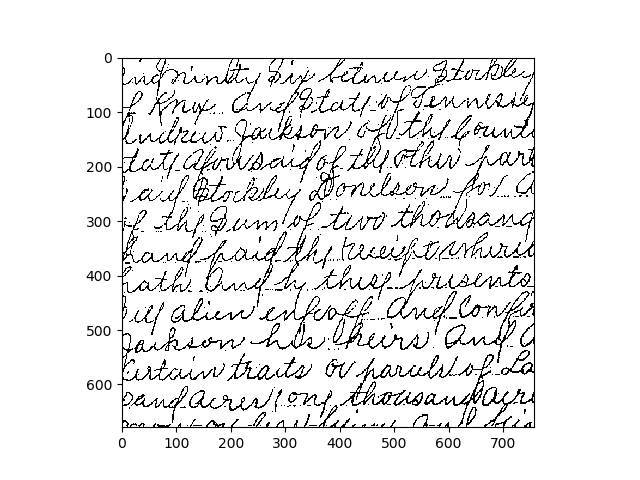 and Ninity Six between Stockley
of Knox And State of Tennessee
Andrew Jackson of the Count
tate aforesaid of the other part
said Stockley Donelson for
of the Sum of two thousand
hand paid the receipt whereo
hath And by these presents
ell alien enfeoff And Confir
Jackson his heirs And
Certain traits or parcels of La
sand Acres one thousand Acre
0
100
200
300
400
500
600
0 100 200 300 400 500 600 700